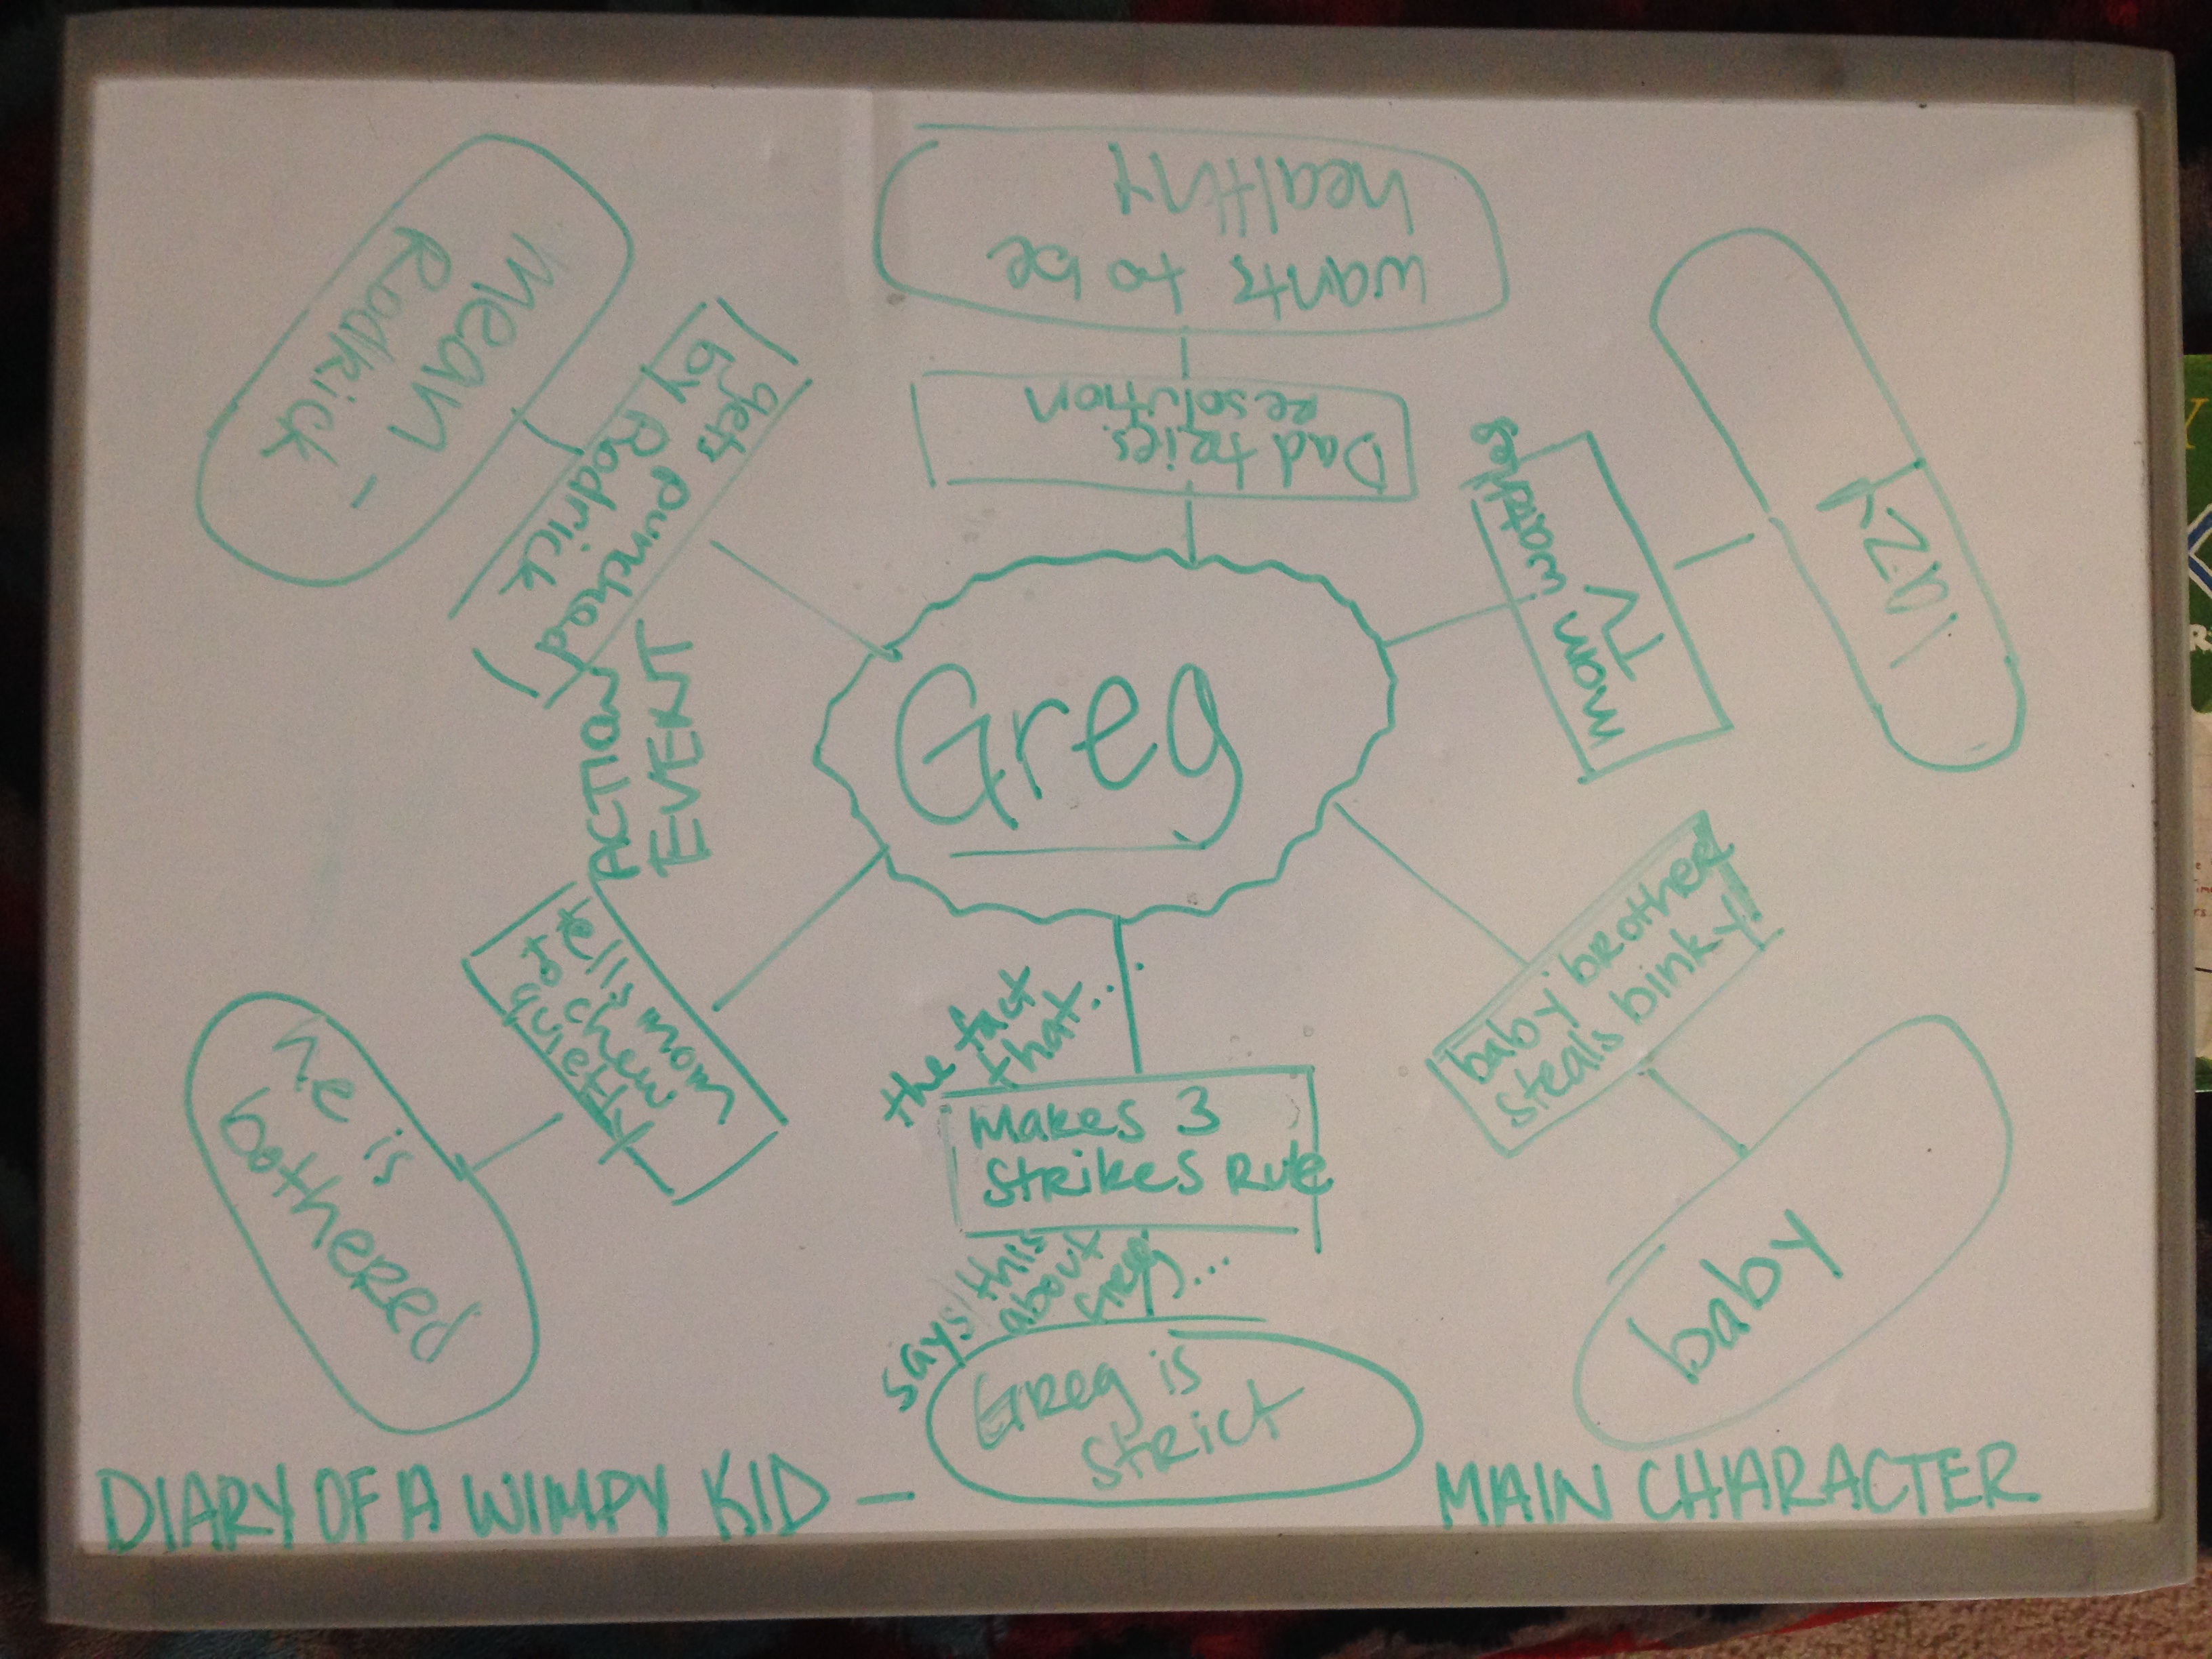 wants to be
healthy
Dad tries
resolution
mean -
Rodrick -
gets punched
by Rodrick
ACTION
EVENT
Greg
mom watches
TV
lazy
tells mom
to chew
quietly
he is
bothered
the fact
that...
Makes 3
strikes Rule
says this
about
Greg...
Greg is
strict
baby brother
steals binky!
baby
DIARY OF A WIMPY KID — MAIN CHARACTER